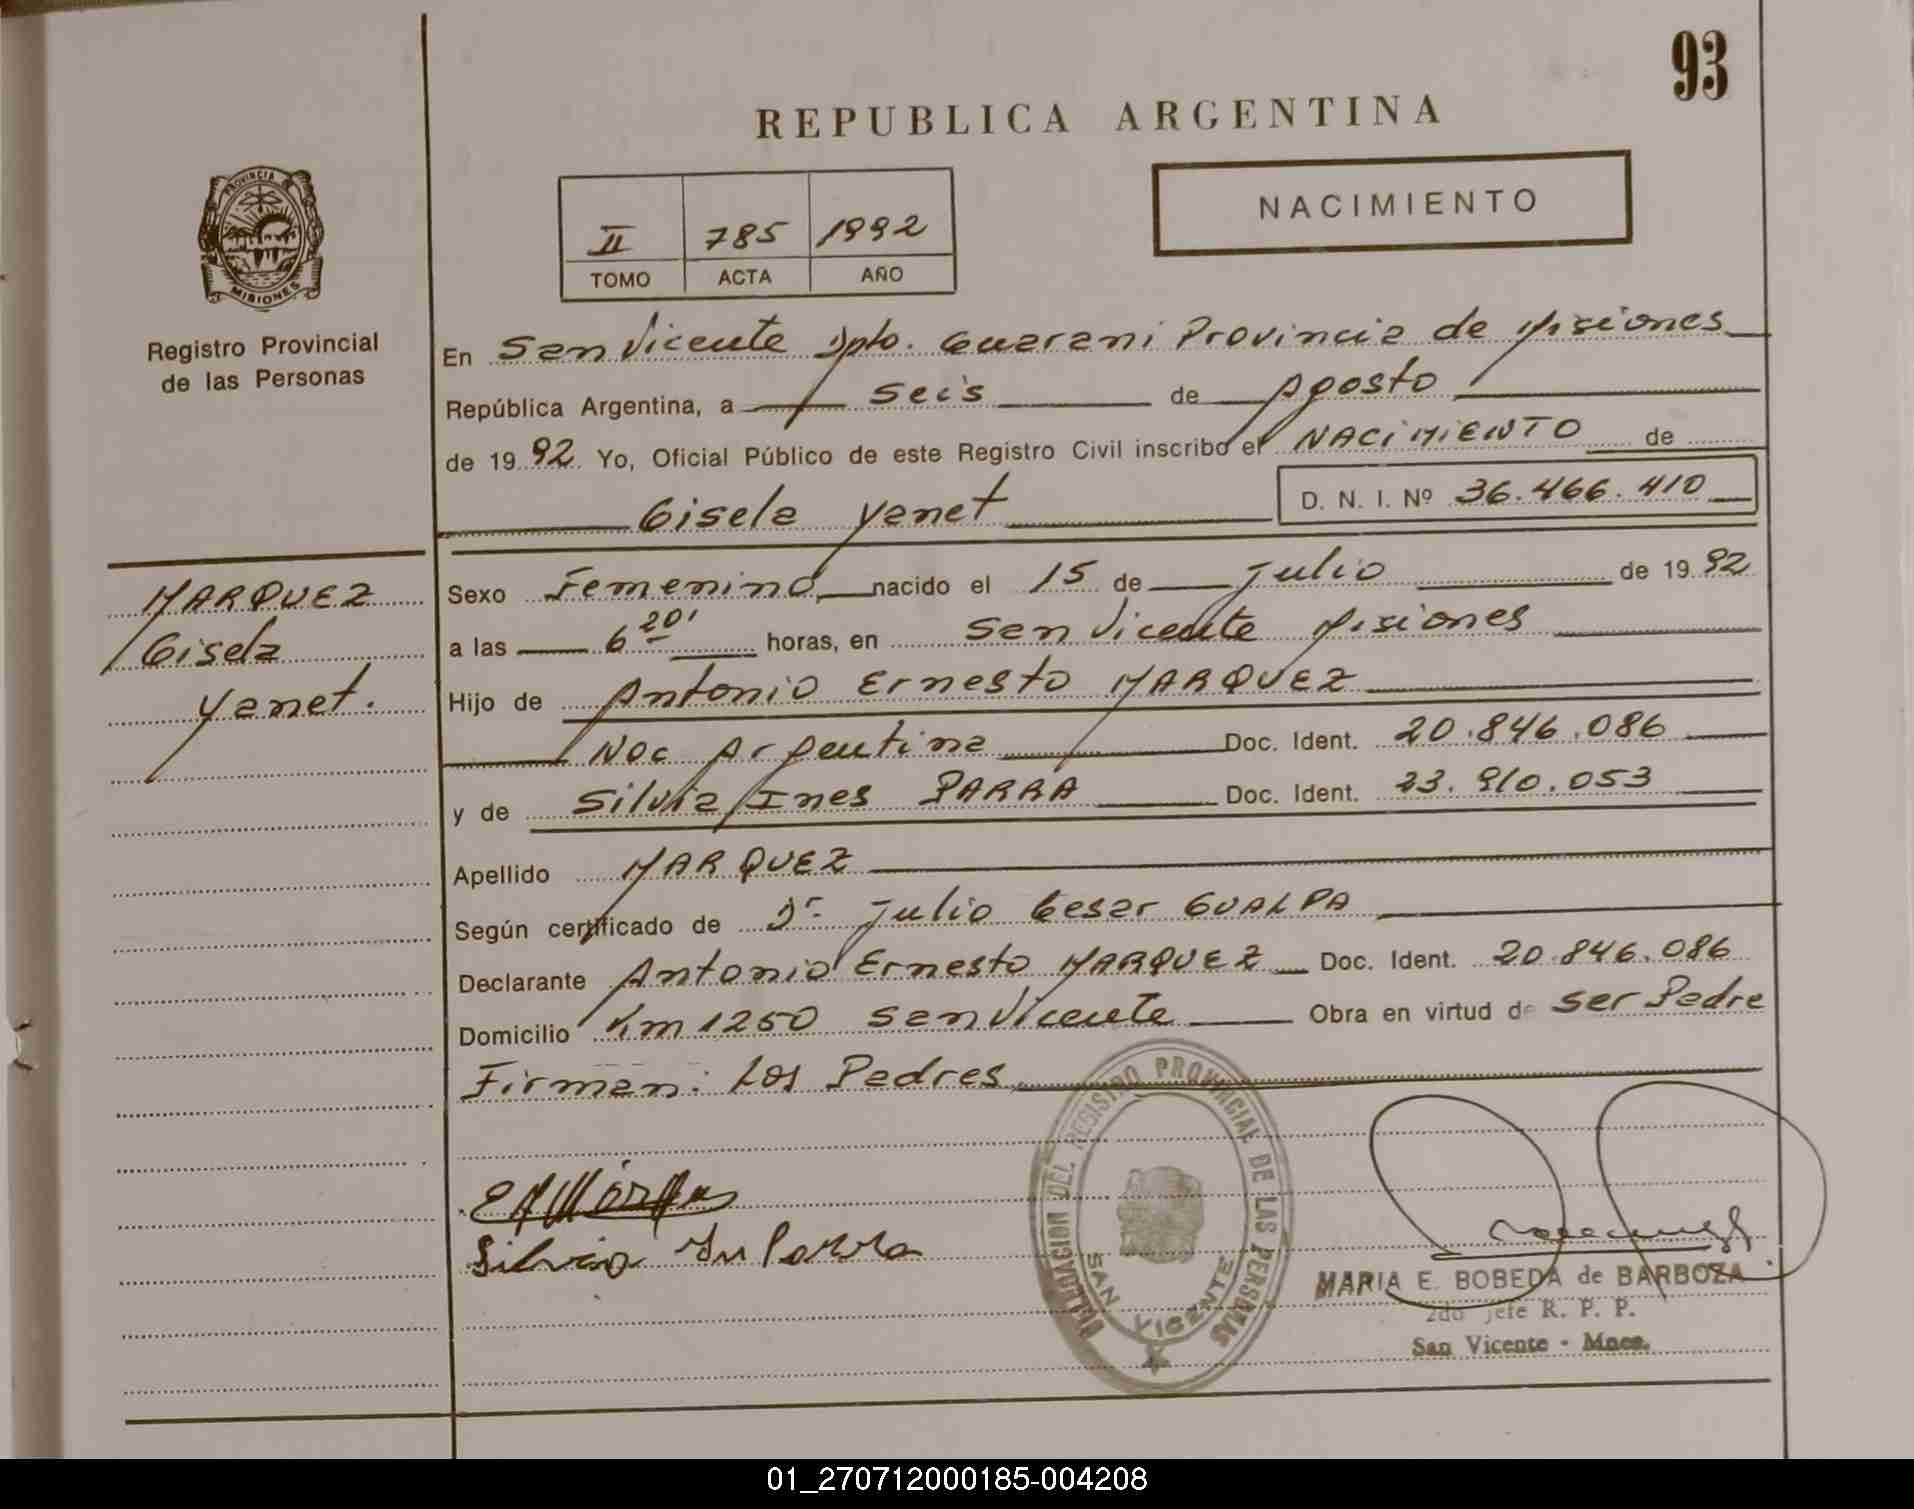 93
REPUBLICA ARGENTINA
PROVINCIA DE
MISIONES
Registro Provincial
de las Personas
II 785 1992
TOMO ACTA AÑO
NACIMIENTO
En San Vicente Dpto. Guarani Provincia de Misiones
República Argentina, a seis de Agosto
de 1992 Yo, Oficial Público de este Registro Civil inscribo el NACIMIENTO de
Gisela Yanet D. N. I. Nº 36.466.410
MARQUEZ
Gisela
Yanet.
Sexo Femenino, nacido el 15 de Julio de 1992
a las 6 20' horas, en San Vicente Misiones
Hijo de Antonio Ernesto MARQUEZ
Nac Argentina Doc. Ident. 20.846.086
y de Silvia Ines PARRA Doc. Ident. 23.910.053
Apellido MARQUEZ
Según certificado de Dr. Julio Cesar GUALPA
Declarante Antonio Ernesto MARQUEZ Doc. Ident. 20.846.086
Domicilio Km 1250 San Vicente Obra en virtud de ser Padre
Firman: Los Padres
DELEGACION DEL REGISTRO PROVINCIAL DE LAS PERSONAS
SAN VICENTE
Silvia In Parra
MARIA E. BOBEDA de BARBOZA
2do Jefe R. P. P.
San Vicente - Mnes.
01_270712000185-004208